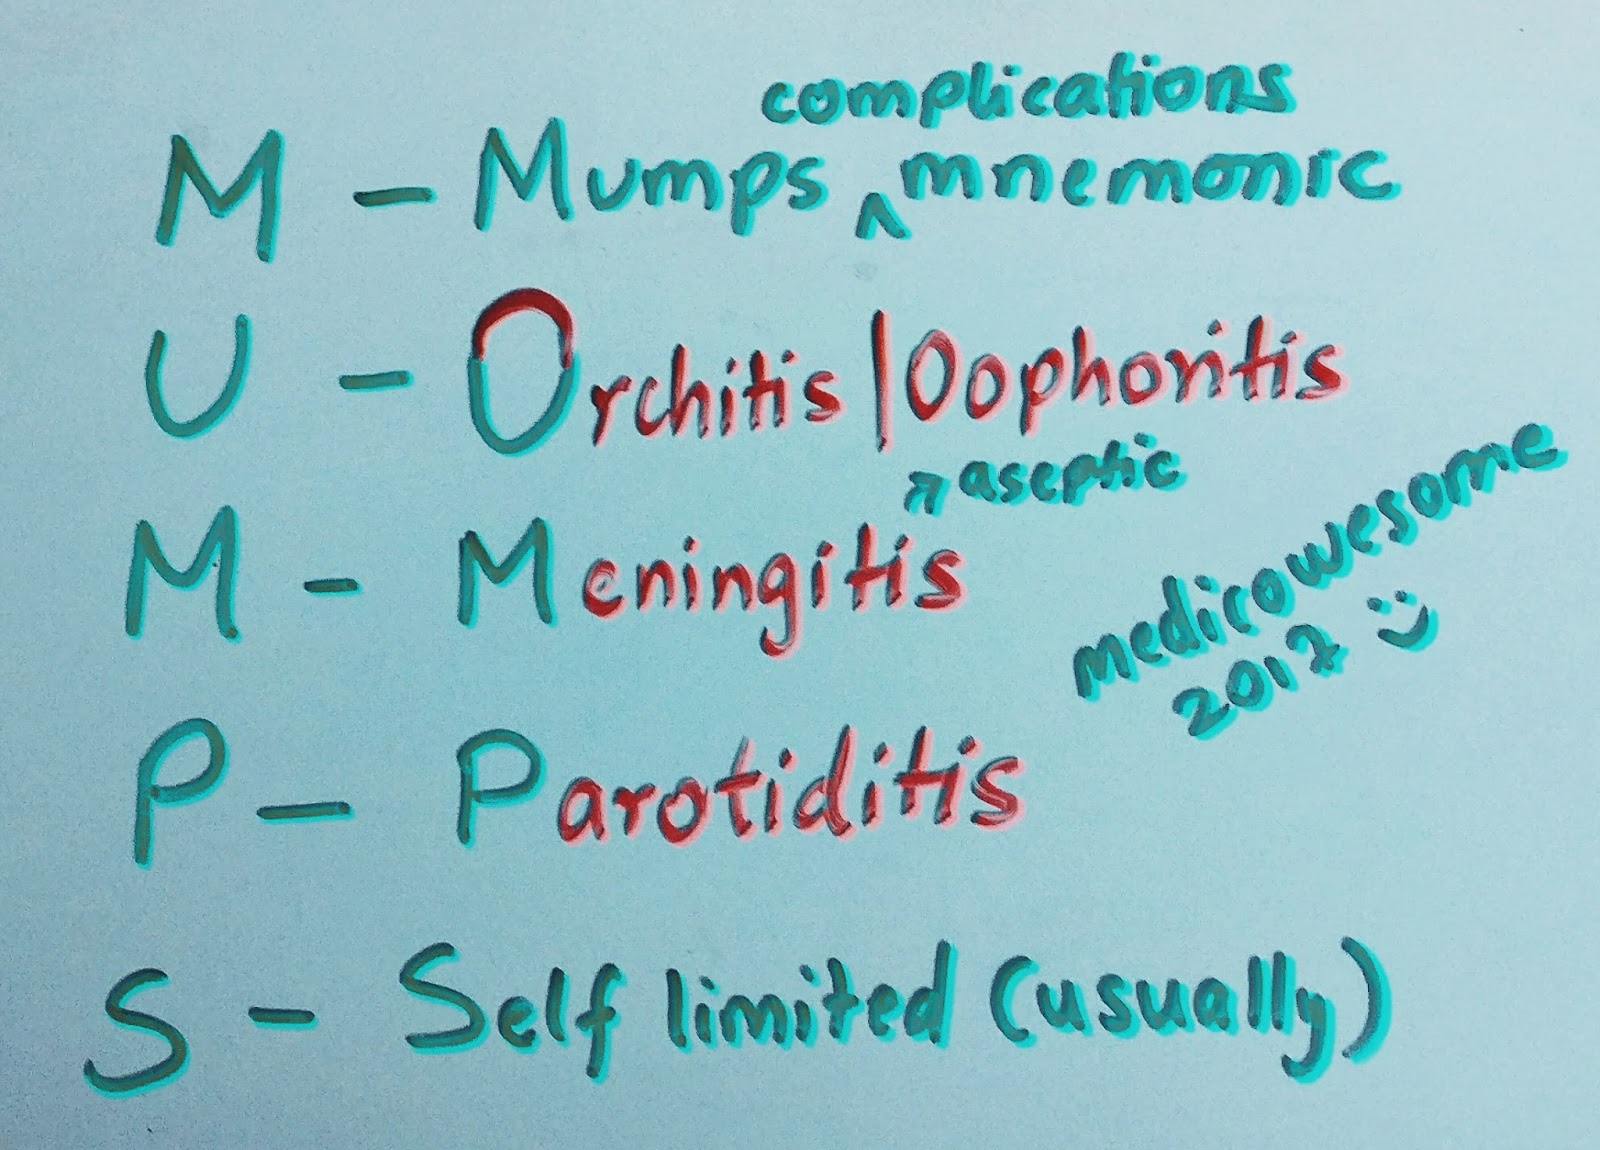 complications
M - Mumps ^ mnemonic
U - Orchitis / Oophoritis
aseptic
M - Meningitis
medicowesome
2017 :)
P - Parotiditis
S - Self limited (usually)